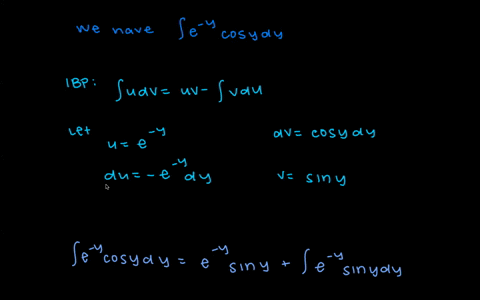 we have ∫e^-y cosydy
IBP: ∫udv= uv- ∫vdu
Let u= e^-y dv= cosydy
du= -e^-y dy v= siny
∫e^-y cosydy = e^-y siny + ∫e^-y sinydy